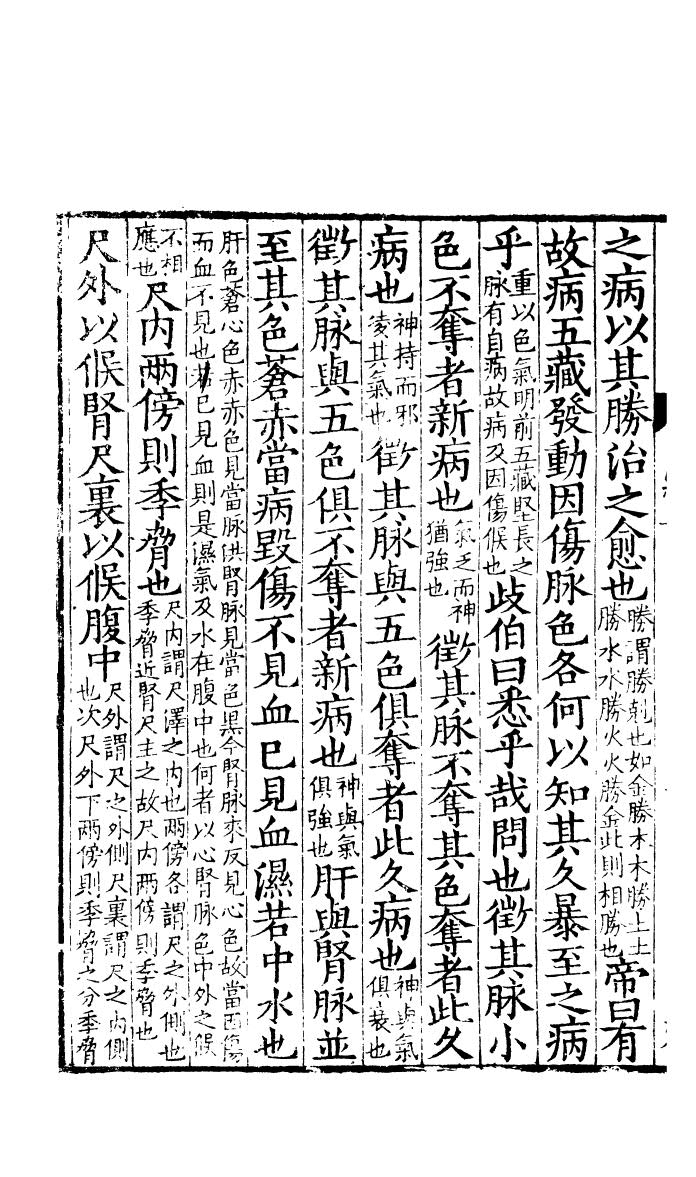 之病以其勝治之愈也勝謂勝剋也如金勝木木勝土土勝水水勝火火勝金此則相勝也帝曰有
故病五藏發動因傷脉色各何以知其久暴至之病
乎重以色氣明前五藏堅長之脉有自病故病及因傷候也歧伯曰悉乎哉問也徵其脉小
色不奪者新病也氣乏而神猶強也徵其脉不奪其色奪者此久
病也神持而邪凌其氣也徵其脉與五色俱奪者此久病也神與氣俱衰也
徵其脉與五色俱不奪者新病也神與氣俱強也肝與腎脉並
至其色蒼赤當病毀傷不見血已見血濕若中水也
肝色蒼心色赤赤色見當脉洪腎脉見當色黑今腎脉來反見心色故當因傷而血不見也若已見血則是濕氣及水在腹中也何者以心腎脉色中外之候
不相應也尺內兩傍則季脅也尺內謂尺澤之內也兩傍各謂尺之外側也季脅近腎尺主之故尺內兩傍則季脅也
尺外以候腎尺裏以候腹中尺外謂尺之外側尺裏謂尺之內側也次尺外下兩傍則季脅之分季脅